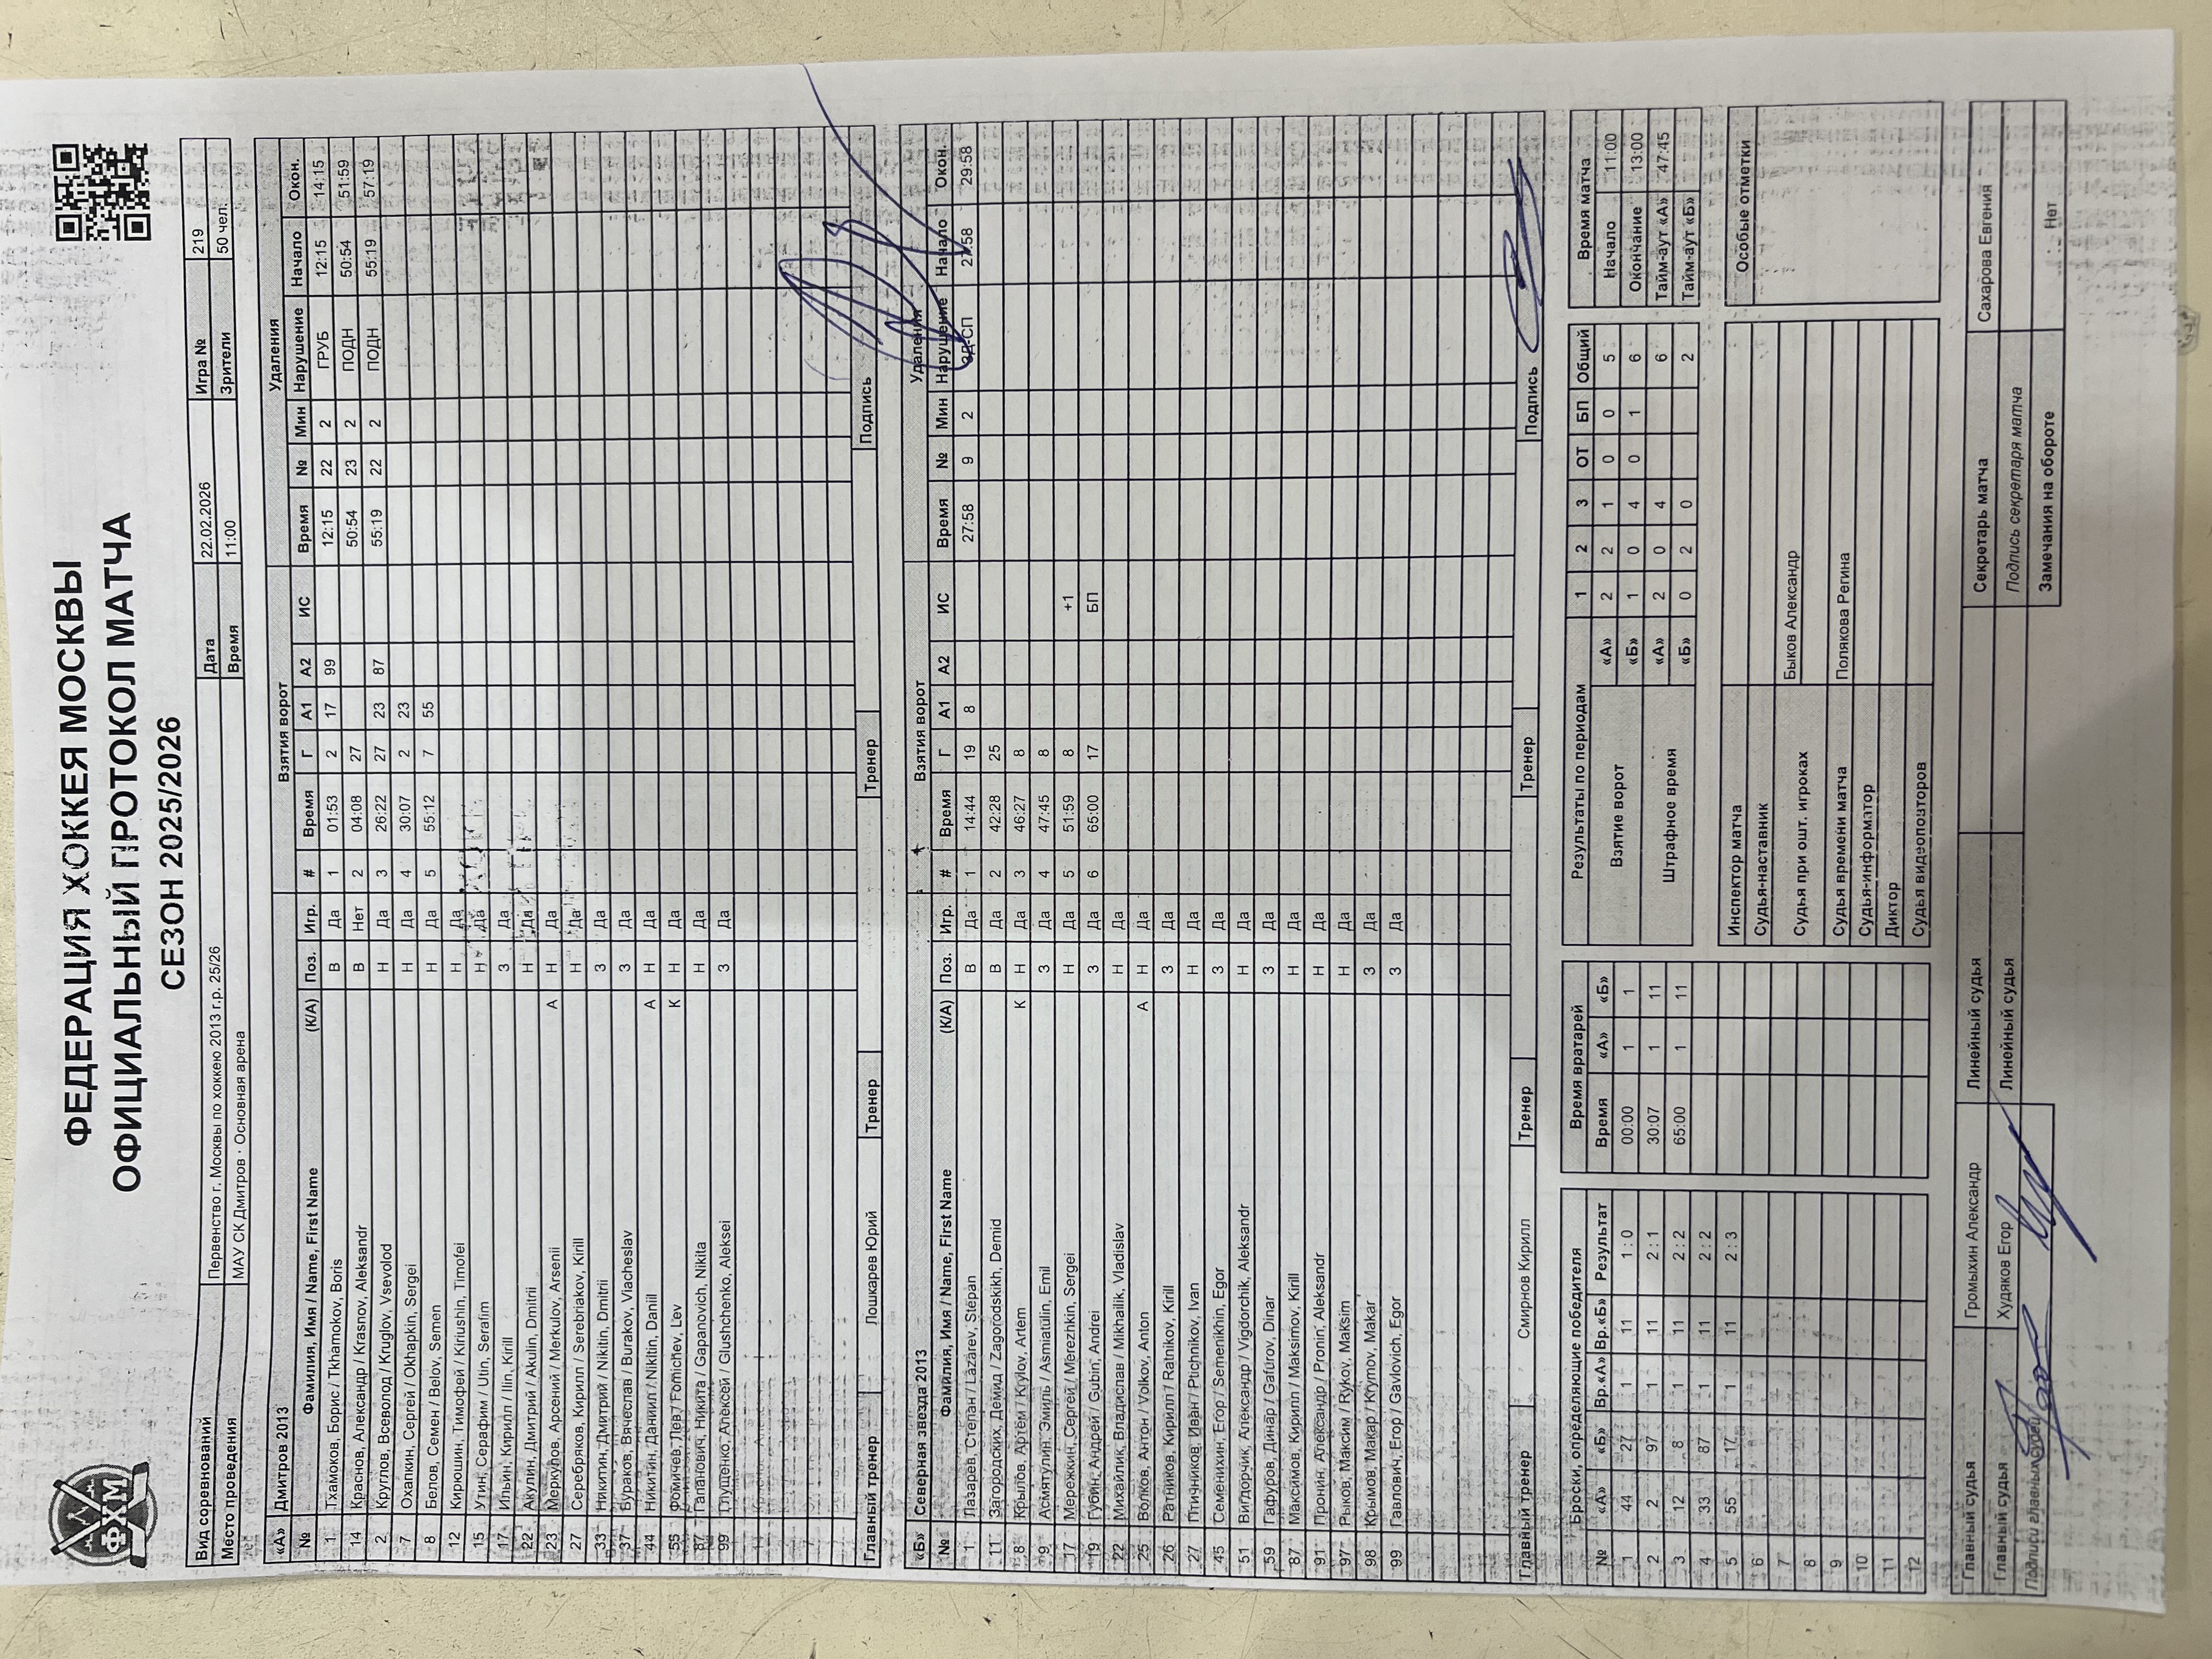 ФЕДЕРАЦИЯ ХОККЕЯ МОСКВЫ
ОФИЦИАЛЬНЫЙ ПРОТОКОЛ МАТЧА
СЕЗОН 2025/2026
ФХМ
Вид соревнований Первенство г. Москвы по хоккею 2013 г.р. 25/26 Дата 22.02.2026 Игра № 219
Место проведения МАУ СК Дмитров · Основная арена Время 11:00 Зрители 50 чел.
«А» Дмитров 2013 Взятия ворот Удаления
№ Фамилия, Имя / Name, First Name (К/А) Поз. Игр. # Время Г А1 А2 ИС Время № Мин Нарушение Начало Окон.
1 Тхамоков, Борис / Tkhamokov, Boris В Да 1 01:53 2 17 99 12:15 22 2 ГРУБ 12:15 14:15
14 Краснов, Александр / Krasnov, Aleksandr В Нет 2 04:08 27 50:54 23 2 ПОДН 50:54 51:59
2 Круглов, Всеволод / Kruglov, Vsevolod Н Да 3 26:22 27 23 87 55:19 22 2 ПОДН 55:19 57:19
7 Охапкин, Сергей / Okhapkin, Sergei Н Да 4 30:07 2 23
8 Белов, Семен / Belov, Semen Н Да 5 55:12 7 55
12 Кирюшин, Тимофей / Kiriushin, Timofei Н Да
15 Утин, Серафим / Utin, Serafim Н Да
17 Ильин, Кирилл / Ilin, Kirill З Да
22 Акулин, Дмитрий / Akulin, Dmitrii Н Да
23 Меркулов, Арсений / Merkulov, Arsenii А Н Да
27 Серебряков, Кирилл / Serebriakov, Kirill Н Да
33 Никитин, Дмитрий / Nikitin, Dmitrii З Да
37 Бураков, Вячеслав / Burakov, Viacheslav З Да
44 Никитин, Даниил / Nikitin, Daniil А Н Да
55 Фомичев, Лев / Fomichev, Lev К Н Да
87 Гапанович, Никита / Gapanovich, Nikita Н Да
99 Глущенко, Алексей / Glushchenko, Aleksei З Да
Главный тренер Лошкарев Юрий Тренер Тренер Подпись
«Б» Северная звезда 2013 Взятия ворот Удаления
№ Фамилия, Имя / Name, First Name (К/А) Поз. Игр. # Время Г А1 А2 ИС Время № Мин Нарушение Начало Окон.
1 Лазарев, Степан / Lazarev, Stepan В Да 1 14:44 19 8 27:58 9 2 27:58 29:58
11 Загородских, Демид / Zagorodskikh, Demid В Да 2 42:28 25
8 Крылов, Артём / Krylov, Artem К Н Да 3 46:27 8
9 Асмятулин, Эмиль / Asmiatulin, Emil З Да 4 47:45 8
17 Мережкин, Сергей / Merezhkin, Sergei Н Да 5 51:59 8 +1
19 Губин, Андрей / Gubin, Andrei З Да 6 65:00 17 БП
22 Михайлик, Владислав / Mikhailik, Vladislav Н Да
25 Волков, Антон / Volkov, Anton А Н Да
26 Ратников, Кирилл / Ratnikov, Kirill З Да
27 Птичников, Иван / Ptichnikov, Ivan Н Да
45 Семенихин, Егор / Semenikhin, Egor З Да
51 Вигдорчик, Александр / Vigdorchik, Aleksandr Н Да
59 Гафуров, Динар / Gafurov, Dinar З Да
87 Максимов, Кирилл / Maksimov, Kirill Н Да
91 Пронин, Александр / Pronin, Aleksandr Н Да
97 Рыков, Максим / Rykov, Maksim Н Да
98 Крымов, Макар / Krymov, Makar З Да
99 Гавлович, Егор / Gavlovich, Egor З Да
Главный тренер Смирнов Кирилл Тренер Тренер Подпись
Броски, определяющие победителя Время вратарей Результаты по периодам 1 2 3 ОТ БП Общий Время матча
№ «А» «Б» Вр.«А» Вр.«Б» Результат Время «А» «Б» Взятие ворот «А» 2 2 1 0 0 5 Начало 11:00
1 44 27 1 11 1 : 0 00:00 1 1 «Б» 1 0 4 0 1 6 Окончание 13:00
2 2 97 1 11 2 : 1 30:07 1 11 Штрафное время «А» 2 0 4 6 Тайм-аут «А» 47:45
3 12 8 1 11 2 : 2 65:00 1 11 «Б» 0 2 0 2 Тайм-аут «Б»
4 33 87 1 11 2 : 2
5 55 17 1 11 2 : 3 Инспектор матча Особые отметки
6 Судья-наставник
7 Судья при ошт. игроках Быков Александр
8
9 Судья времени матча Полякова Регина
10 Судья-информатор
11 Диктор
12 Судья видеоповторов
Главный судья Громыхин Александр Линейный судья Секретарь матча Сахарова Евгения
Главный судья Худяков Егор Линейный судья Подпись секретаря матча
Подписи главных судей Замечания на обороте Нет